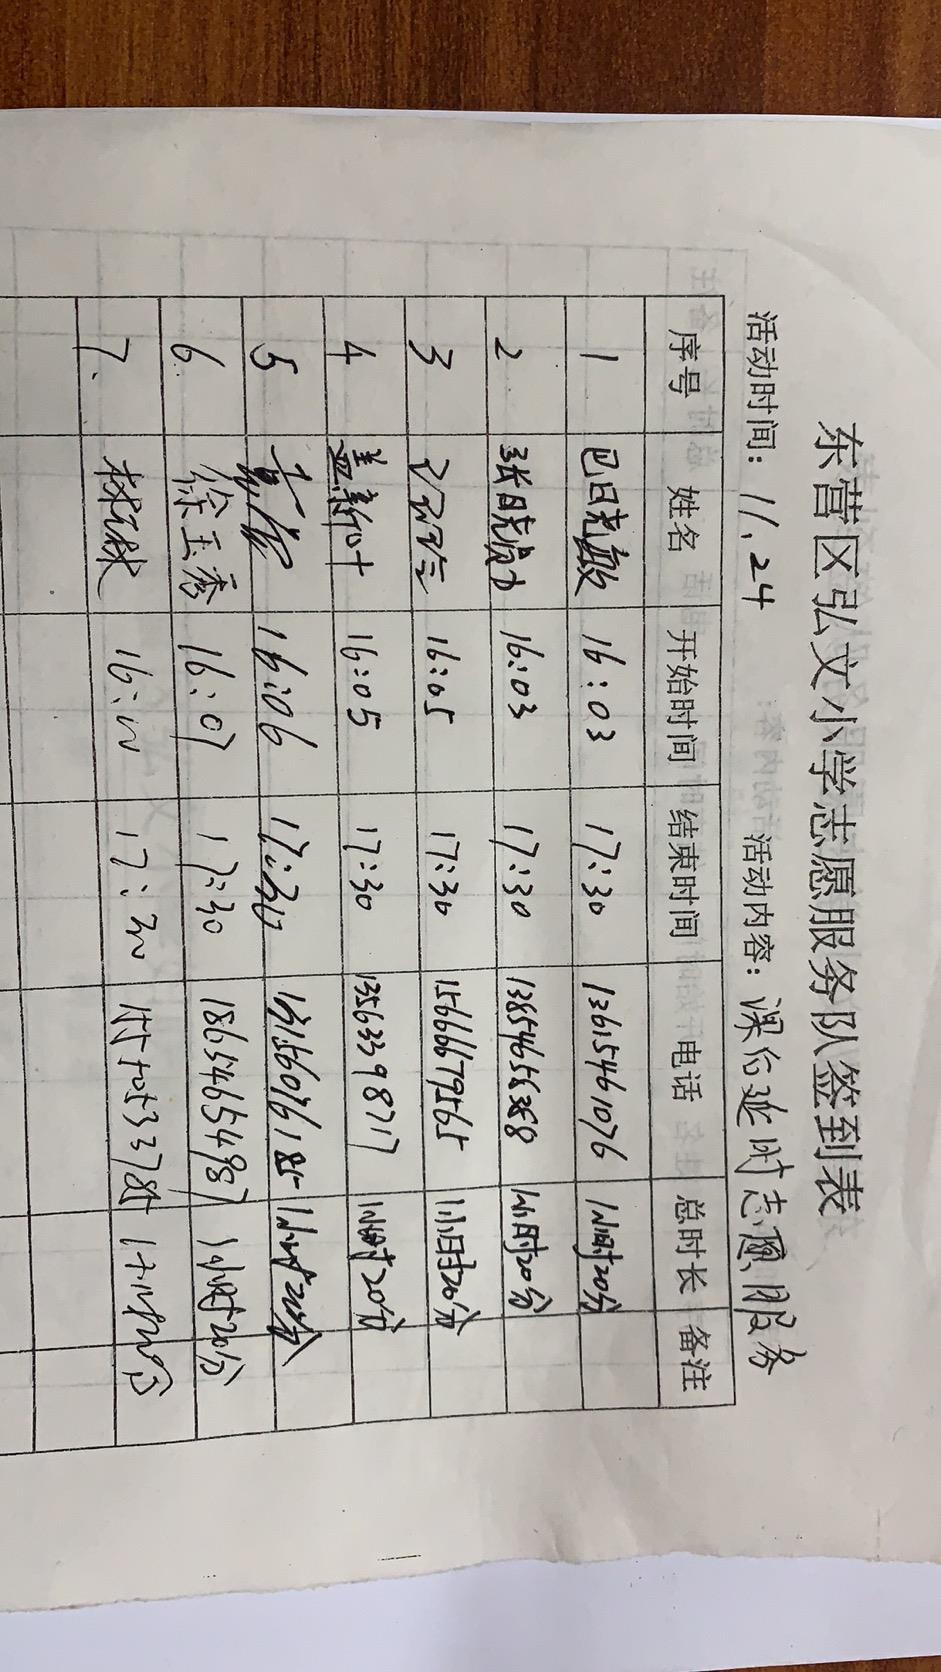 东营区弘文小学志愿服务队签到表
活动时间：11.24 活动内容：课后延时志愿服务
序号 姓名 开始时间 结束时间 电话 总时长 备注
1 巴日尧敏 16:03 17:30 13615461076 1小时20分
2 16:03 17:30 13854655388 1小时20分
3 16:05 17:30 15666679565 1小时20分
4 16:05 17:30 13563398717 1小时20分
5 16:06 17:30 1小时20分
6 徐玉秀 16:07 17:30 18654654987 1小时20分
7. 16:10 17:30 1小时20分